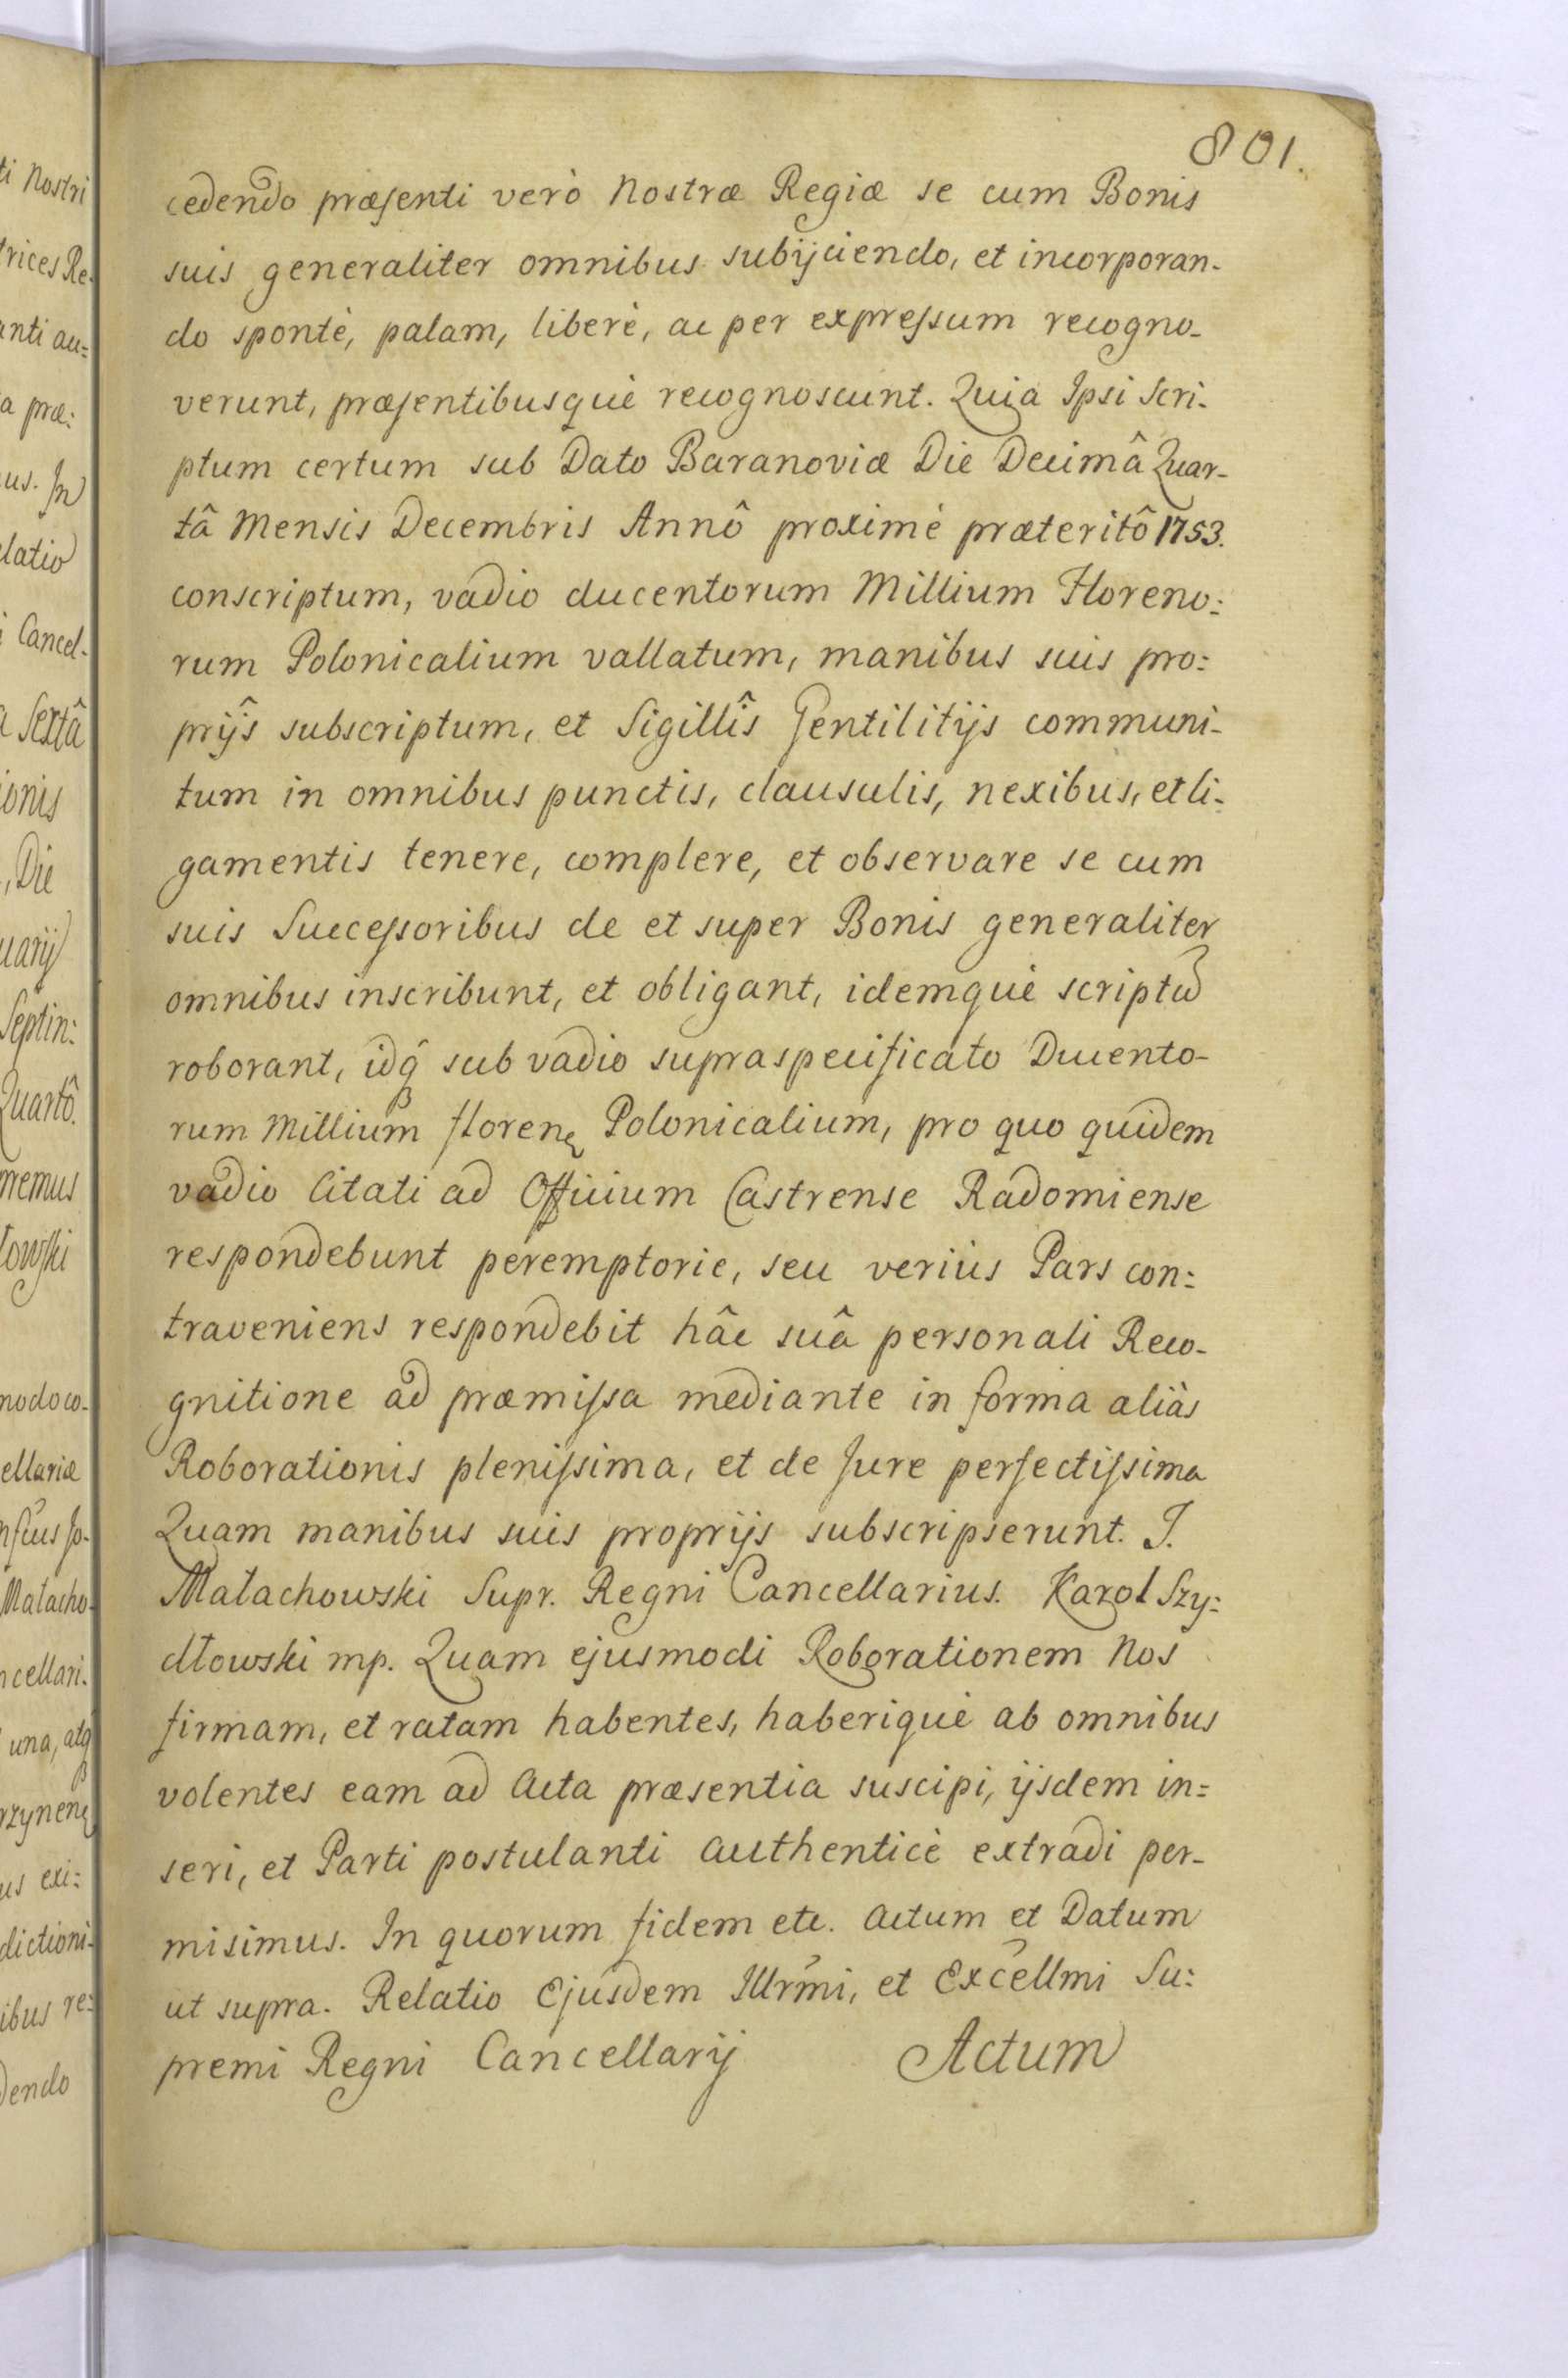 801.
cedendo præsenti verò Nostræ Regiæ se cum Bonis
suis generaliter omnibus subijciendo, et incorporan-
do spontè, palam, liberè, ac per expressum recogno-
verunt, præsentibusquè recognoscunt. Quia Ipsi Scri-
ptum certum sub Dato Baranoviæ Die Decimâ Quar-
tâ Mensis Decembris Annô proximè præteritô 1753.
conscriptum, vadio ducentorum Millium Floreno:
rum Polonicalium vallatum, manibus suis pro:
prijs subscriptum, et Sigillîs Gentilitijs communi-
tum in omnibus punctis, clausulis, nexibus, et li-
gamentis tenere, complere, et observare se cum
suis Successoribus de et super Bonis generaliter
omnibus inscribunt, et obligant, idemquè scriptũ
roborant, idq̃ sub vadio supraspecificato Ducento-
rum Millium floren Polonicalium, pro quo quidem
vadio Citati ad Officium Castrense Radomiense
respondebunt peremptorie, seu veriùs Pars con:
traveniens respondebit hâc suâ personali Reco-
gnitione ad præmissa mediante in forma aliàs
Roborationis plenissima, et de Jure perfectissima
Quam manibus suis proprijs subscripserunt. J.
Małachowski Supr. Regni Cancellarius. Karol Szy:
dłowski mp. Quam ejusmodi Roborationem Nos
firmam, et ratam habentes, haberiquè ab omnibus
volentes eam ad Acta præsentia suscipi, ijsdem in=
seri, et Parti postulanti authenticè extradi per-
misimus. In quorum fidem etc. Actum et Datum
ut supra. Relatio Ejusdem Illrm̃i, et Excellm̃i Su:
premi Regni Cancellarij Actum
ti Nostri
trices Re-
anti au=
a præ:
us. In
elatio
i Cancel-
a Sextâ
ionis
, Die
uarij
Septin:
Quartô.
memus
łowski
modo co-
cellariæ
Małacho-
ncellari-
una, atq̃
us exi:
dictioni-
ibus re:
dendo